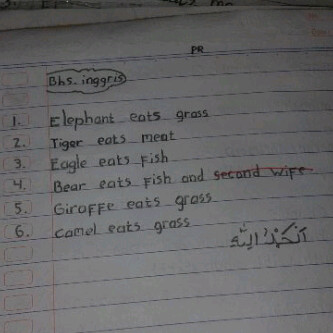 PR
Bhs. inggris
1. Elephant eats grass
2. Tiger eats meat
3. Eagle eats fish
4. Bear eats fish and second wife
5. Giraffe eats grass
6. camel eats grass